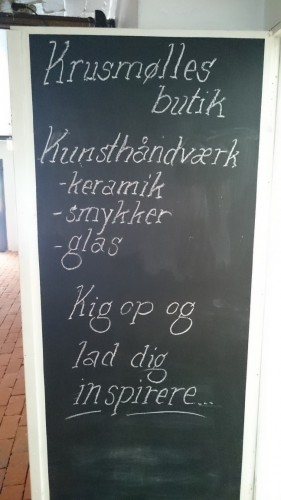 Krusmølles
butik
Kunsthåndværk
-keramik
-smykker
-glas
Kig op og
lad dig
inspirere...